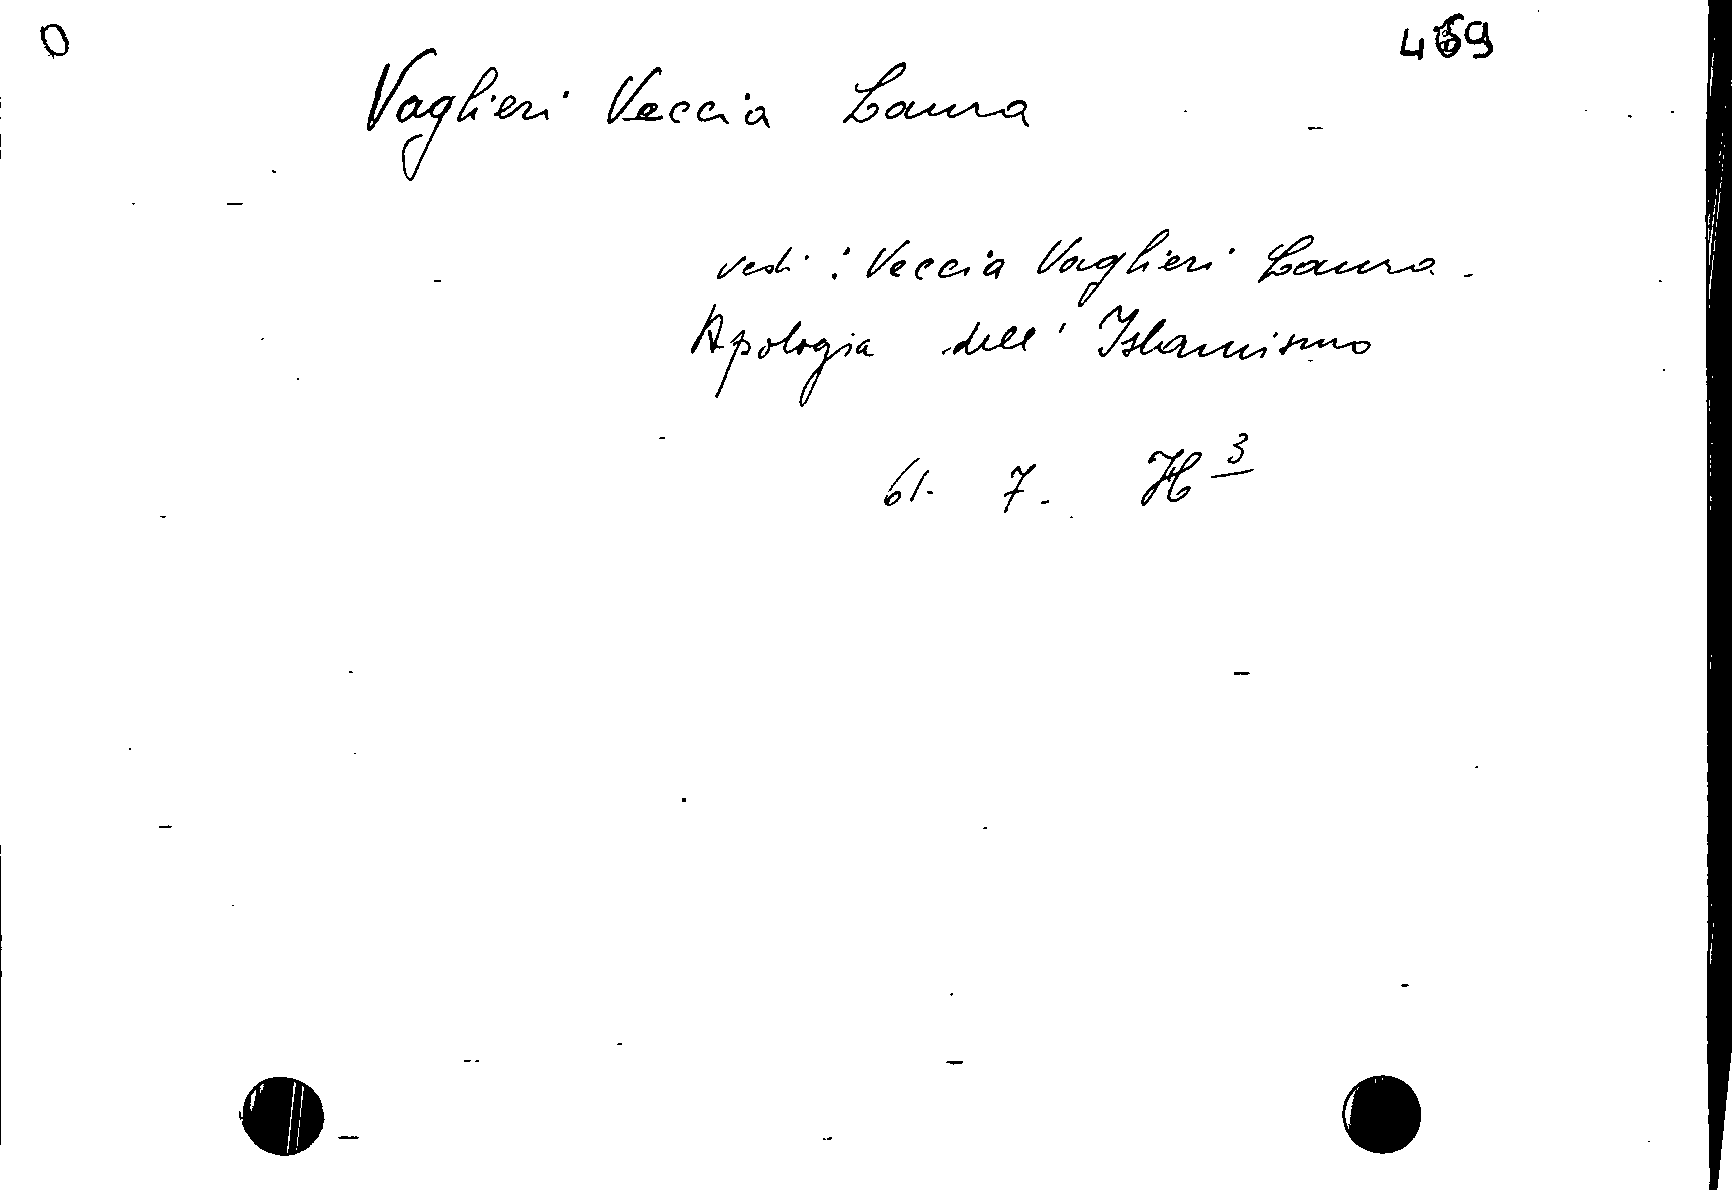 0
469
Vaglieri Veccia Laura
vedi : Veccia Vaglieri Laura.
Apologia dell' Islamismo
61. 7. H 3